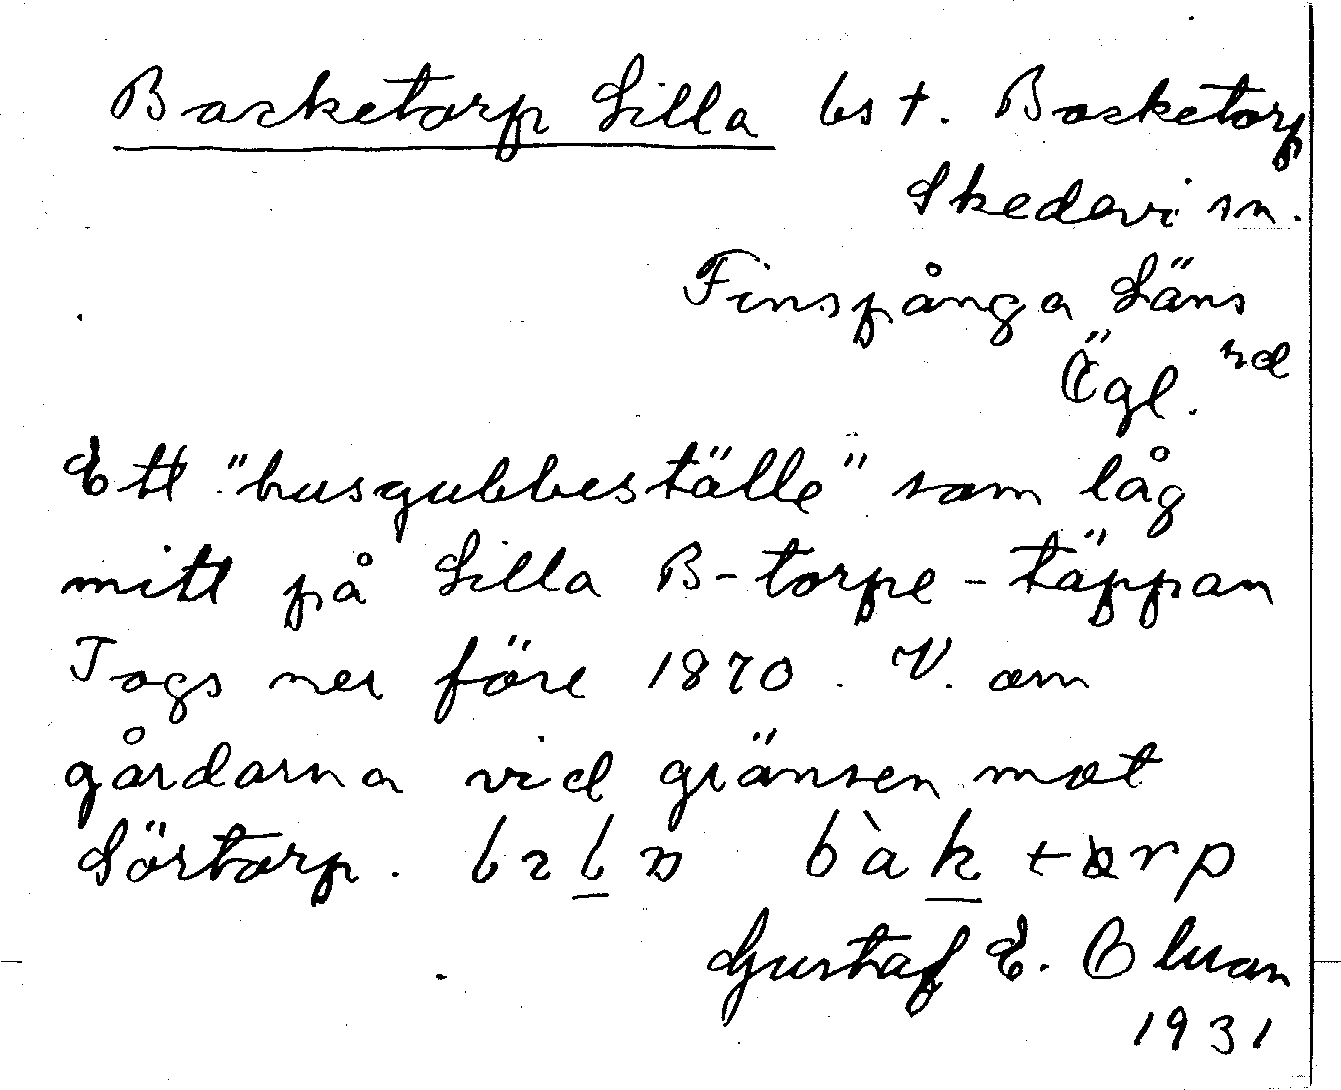 Backetorp Lilla bst. Backetorp
Skedevi sn.
Finspånga Läns
Ögl. hd
Ett "husgubbeställe" som låg
mitt på Lilla B-torpe-täppan
Togs ner före 1870. V. om
gårdarna vid gränsen mot
Sörtorp. bàk torp
Gustaf E. Olson
1931